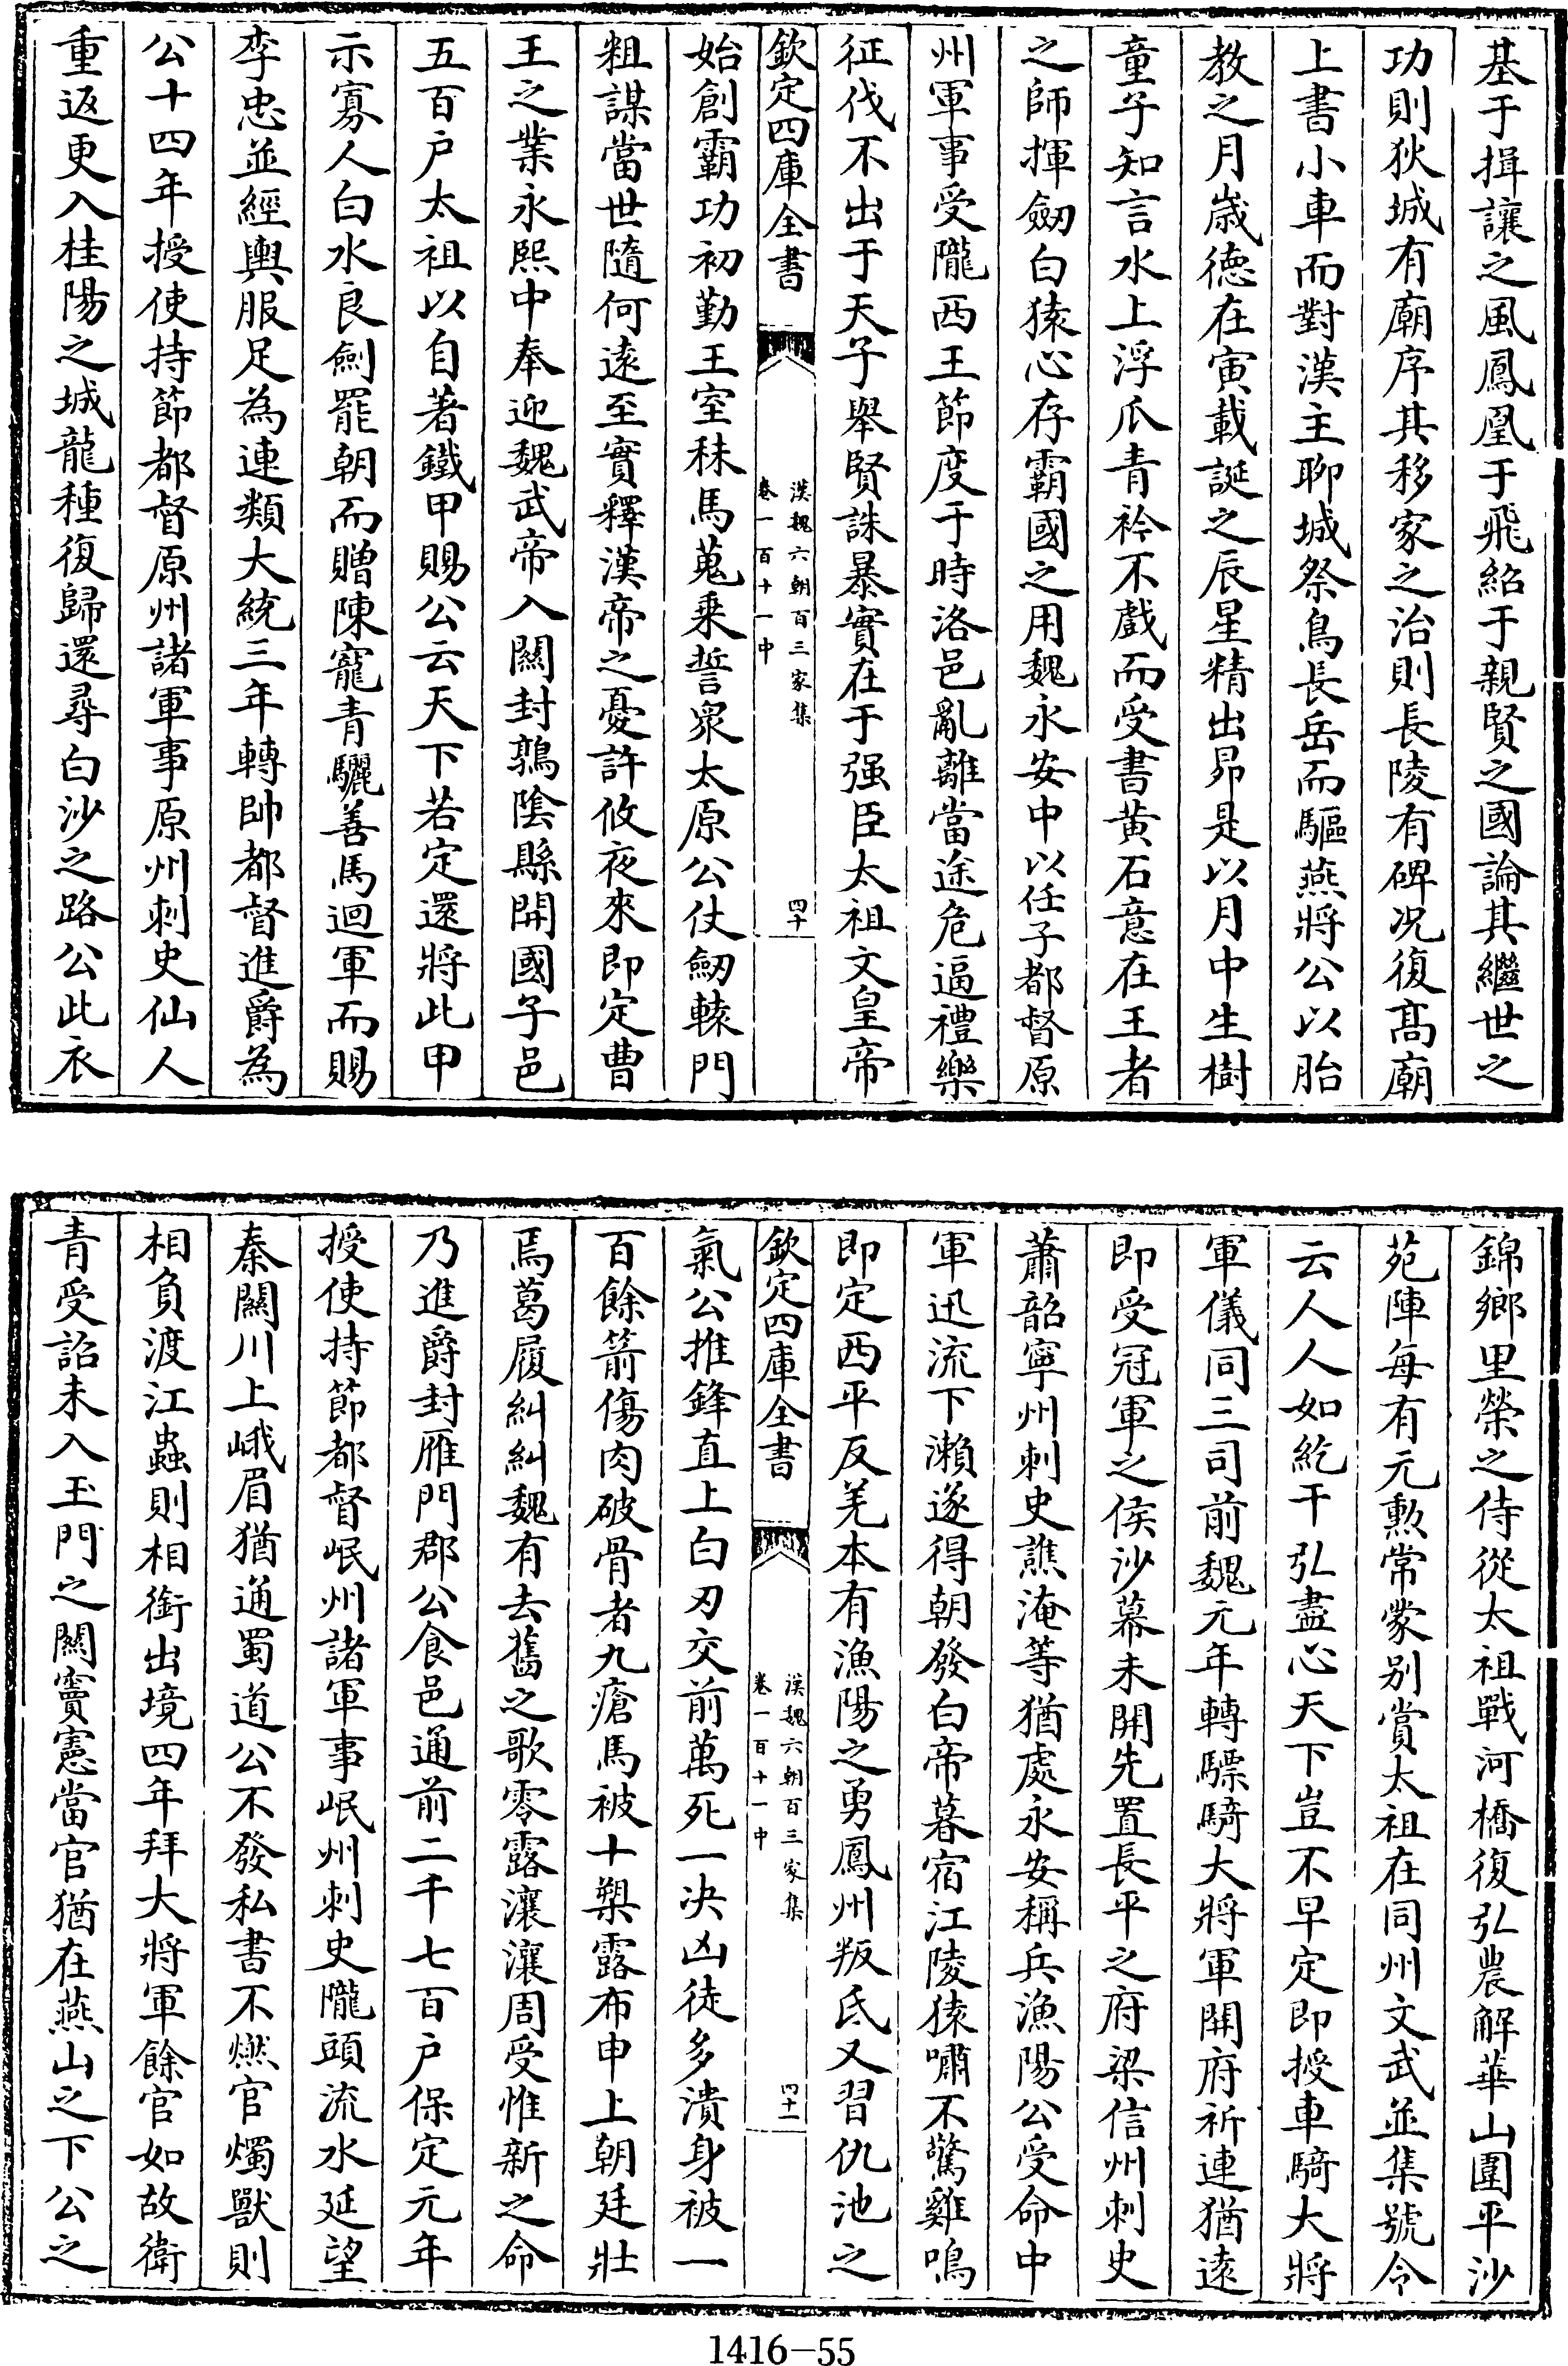 基于揖讓之風鳳凰于飛紹于親賢之國論其繼世之
功則狄城有廟序其移家之治則長陵有碑况復髙廟
上書小車而對漢主聊城祭鳥長岳而驅燕將公以胎
教之月嵗徳在寅載誕之辰星精出昴是以月中生樹
童子知言水上浮爪青衿不戲而受書黄石意在王者
之師揮劒白猿心存霸國之用魏永安中以任子都督原
州軍事受隴西王節度于時洛邑亂離當途危逼禮樂
征伐不出于天子舉賢誅暴實在于强臣太祖文皇帝
欽定四庫全書
漢魏六朝百三家集
卷一百十一中
四十
始創霸功初勤王室秣馬蒐乗誓衆太原公仗劒轅門
粗謀當世隨何逺至實釋漢帝之憂許攸夜來即定曹
王之業永熙中奉迎魏武帝入關封鶉隂縣開國子邑
五百户太祖以自著鐵甲賜公云天下若定還將此甲
示寡人白水良劍罷朝而贈陳寵青驪善馬迴軍而賜
李忠並經輿服足為連類大統三年轉帥都督進爵為
公十四年授使持節都督原州諸軍事原州刺史仙人
重返更入桂陽之城龍種復歸還尋白沙之路公此衣
錦鄉里榮之侍從太祖戰河橋復弘農解華山圍平沙
苑陣每有元勲常蒙别賞太祖在同州文武並集號令
云人人如紇干弘盡心天下豈不早定即授車騎大將
軍儀同三司前魏元年轉驃騎大將軍開府祈連猶逺
即受冠軍之侯沙幕未開先置長平之府梁信州刺史
蕭韶寧州刺史譙淹等猶處永安稱兵漁陽公受命中
軍迅流下瀨遂得朝發白帝暮宿江陵猿嘯不驚雞鳴
即定西平反羌本有漁陽之勇鳳州叛氐又習仇池之
欽定四庫全書
漢魏六朝百三家集
卷一百十一中
四十一
氣公推鋒直上白刃交前萬死一决凶徒多潰身被一
百餘箭傷肉破骨者九瘡馬被十槊露布申上朝廷壯
焉葛屨糾糾魏有去舊之歌零露瀼瀼周受惟新之命
乃進爵封雁門郡公食邑通前二千七百户保定元年
授使持節都督岷州諸軍事岷州刺史隴頭流水延望
秦關川上峨眉猶通蜀道公不發私書不燃官燭獸則
相負渡江蟲則相銜出境四年拜大將軍餘官如故衛
青受詔未入玉門之關竇憲當官猶在燕山之下公之
1416-55